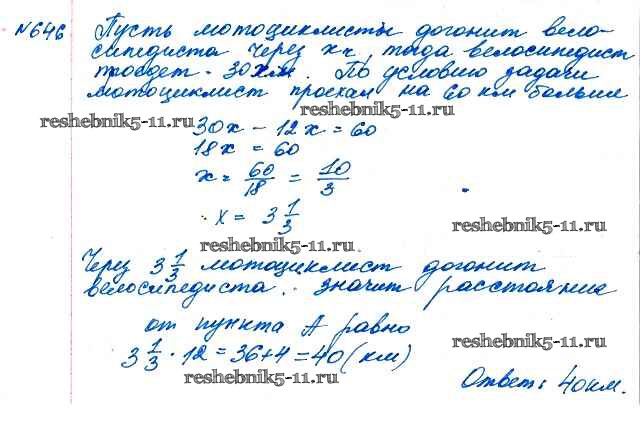 №646 Пусть мотоциклисты догонит вело-
сипедиста через xч, тогда велосипедист
проедет - 30xкм. По условию задачи
мотоциклист проехал на 60 км больше
reshebnik5-11.ru reshebnik5-11.ru
30x - 12x = 60
18x = 60
x = 60/18 = 10/3
x = 3 1/3
reshebnik5-11.ru
reshebnik5-11.ru
Через 3 1/3 мотоциклист догонит
велосипедиста. значит расстояние
от пункта А равно
3 1/3 · 12 = 36+4 = 40 (км)
reshebnik5-11.ru
reshebnik5-11.ru
Ответ: 40км.